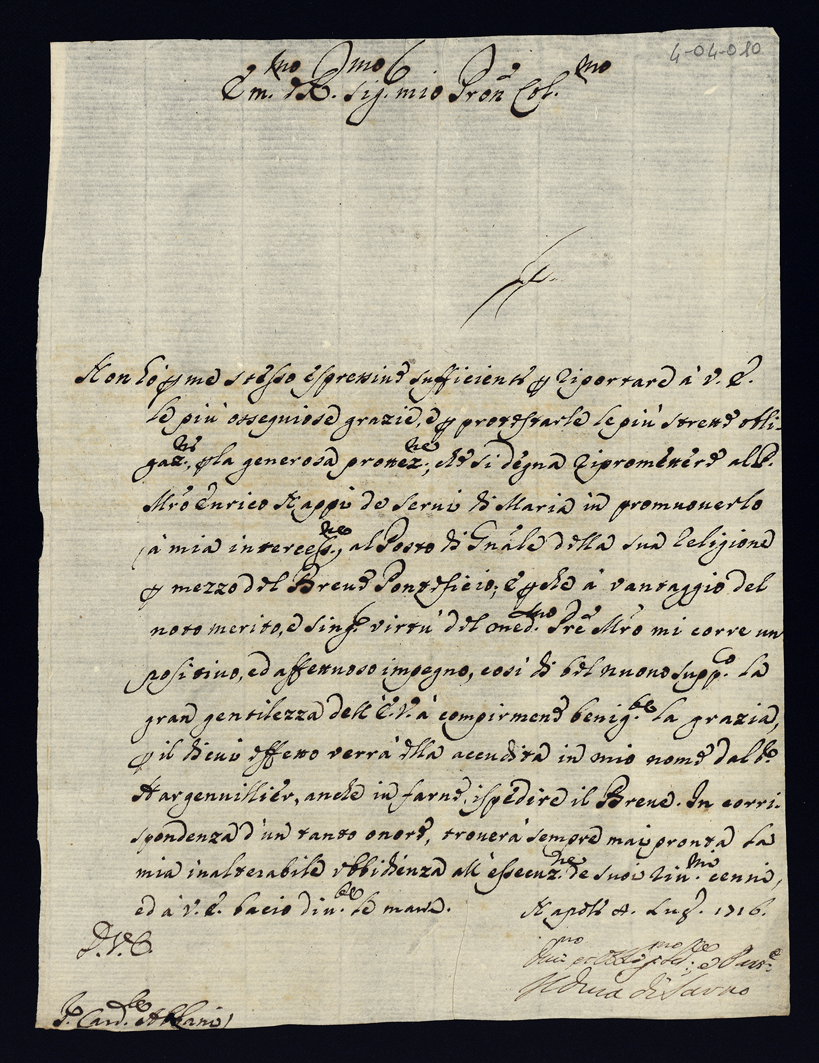 4-04-010
Em.mo e R.mo Sig.r mio Pron Col.mo
Non hò p me stesso espressiue sufficienti p riportare à V. E.
le più ossequiose grazie, e p protestarle le più strette obli-
gaz.ni, p la generosa protez.ne, che si degna ripromettere al P.
Mrõ Enrico Nappi de Serui di Maria in promuouerlo
à mia intercess.ne al Posto di Gnãle della sua Religione
p mezzo del Breue Ponteficio; e p che à vantaggio del
noto merito, e sing.r virtù del med.mo Prẽ Mrõ mi corre un
positiuo, ed affettuoso impegno, così di bel nuouo supp.co la
gran gentilezza dell'E.V. à compirmene benig.te la grazia,
p il di cui effetto verrà ella accudita in mio nome dal
Hargenuillier, anche in farne ispedire il Breue. In corri-
spondenza d'un tanto onore, troverà sempre mai pronta la
mia inalterabile vbbidienza all'essecuz.ne de suoi riu.mi cenni,
ed à V. E. bacio diu.te le mani. Napoli 8. Lug. 1716.
D.V.E.
Il Duca di
S. Card.le Albani